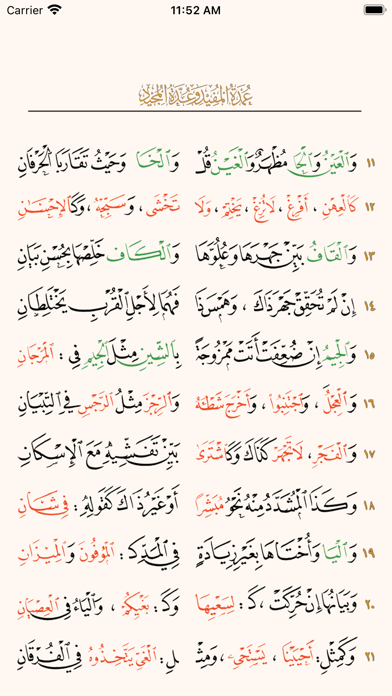 Carrier 11:52 AM
عُمْدَةُ الْمُفِيدِ وَعُدَّةُ الْمُجِيدِ
١١ وَالْعَيْنُ وَالْحَا مُظْهَرٌ وَالْغَيْنُ قُلْ وَالْخَا وَحَيْثُ تَقَارَبَا الْحَرْفَانِ
١٢ كَالْعِهْنِ ، أَفْرِغْ ، لَا تُزِغْ ، يَخْتِمْ ، وَلَا تَخْشَى ، وَسَبِّحْهُ ، وَكَالْإِحْسَانِ
١٣ وَالْقَافُ بَيِّنْ جَهْرَهَا وَعُلُوَّهَا وَالْكَافَ خَلِّصْهَا بِحُسْنِ بَيَانِ
١٤ إِنْ لَمْ تُحَقِّقْ جَهْرَ ذَاكَ ، وَهَمْسَ ذَا فَهُمَا لِأَجْلِ الْقُرْبِ يَخْتَلِطَانِ
١٥ وَالْجِيمُ إِنْ ضَعُفَتْ أَتَتْ مَمْزُوجَةً بِالشِّينِ مِثْلَ الْجِيمِ فِي : الْمَرْجَانِ
١٦ وَالْعِجْلَ ، وَاجْتَنِبُوا ، وَأَخْرَجَ شَطْأَهُ وَالرِّجْزَ مِثْلُ الرِّجْسِ فِي التِّبْيَانِ
١٧ وَالْفَجْرِ ، لَا تَجْهَرْ كَذَاكَ وَكَاشْتَرَى بَيِّنْ تَفَشِّيَهُ مَعَ الْإِسْكَانِ
١٨ وَكَذَا الْمُشَدَّدُ مِنْهُ نَحْوُ مُبَشِّرًا أَوْ غَيْرُ ذَاكَ كَقَوْلِهِ : فِي شَانِ
١٩ وَالْيَا وَأُخْتَاهَا بِغَيْرِ زِيَادَةٍ فِي الْمَدِّ كَـ : الْمُوفُونَ وَالْمِيزَانِ
٢٠ وَبَيَانُهَا إِنْ حُرِّكَتْ ، كَـ : لِسَعْيِهَا وَكَـ : بَغْيِكُمْ ، وَالْيَاءُ فِي الْعِصْيَانِ
٢١ وَكَمِثْلِ : أَحْيَيْنَا ، يَسْتَحْيِ ، وَمِثْـ ـلِ : الْغَيِّ يَتَّخِذُوهُ فِي الْفُرْقَانِ